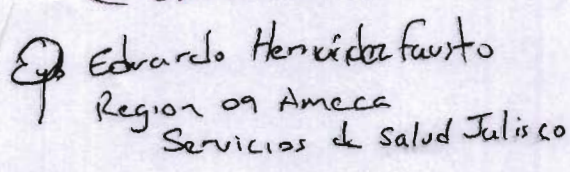 Eduardo Hernández Fausto
Region 09 Ameca
Servicios de Salud Jalisco